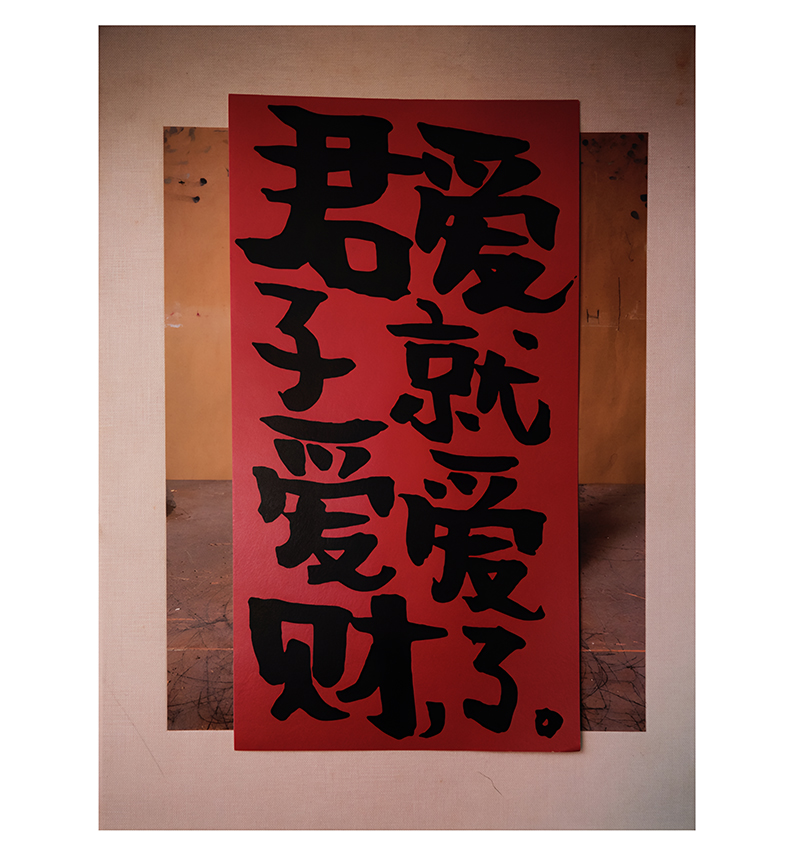 君子爱财，
爱就爱了。